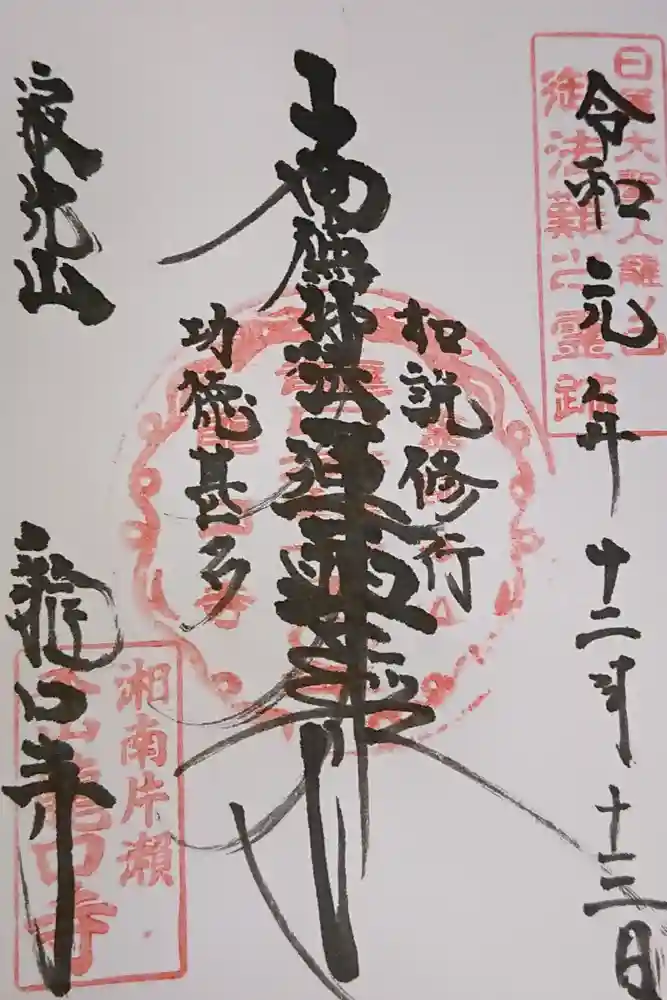 令和元年十二月十三日
日蓮大聖人龍ノ口
御法難之霊跡
如説修行
南無妙法蓮華経
功徳甚多
寂光山
龍口寺
湘南片瀬
本山龍口寺